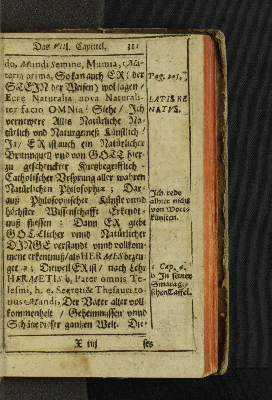 Das VIII. Capittel. 321
do, Mundi Semine, Mumia, Ma-
teria prima, So kan auch ER/ der
STEIN der Weisen/ wol sagen/
Ecce Naturalia nova Naturali-
ter facio OMNia! Siehe/ Ich
vernewere Alles Natürliche Na-
türlich und Naturgemeß Künstlich/
Ja/ ER ist auch ein Natürlicher
Brunnquell und von GOTT hier-
zu geschenckter
Catholischer Vrsprung aller waren
Natürlichen Philosophiæ; Dar-
auß Philosophischer Künste unnd
höchster Wissenschafft Erkendt-
nuß fliessen: Dann ER giebt
GÖTtlicher unnd Natürlicher
DINGE verstandt unnd vollkom-
mene erkentnuß/ als HERMES bezeu-
get a; Dieweil ER ist/ nach
HERMETIS b, Pater omnis Te-
lesmi, h. e. Secreti & Thesauri to-
tius Mundi, Der Vater aller voll-
kommenheit/ Geheimnussen unnd
Schätze dieser gantzen Welt. Die-
X iiij ses
Pag. 205.
Ich rede
alhier nicht
von Wort-
künsten.
a Cap.
b In seiner
Smarag-
schen Taffel.